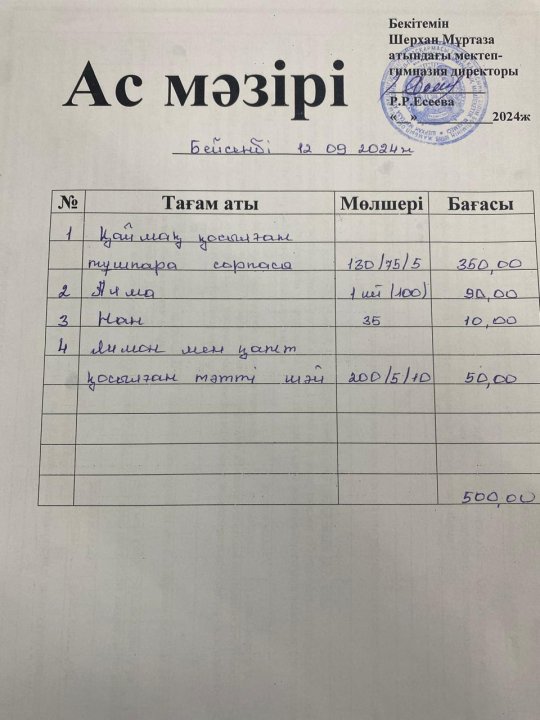 Бекітемін
Шерхан Мұртаза
атындағы мектеп-
гимназия директоры
Р.Р.Есеева
« » 2024ж
Ас мәзірі
Бейсенбі 12 09 2024ж
№ Тағам аты Мөлшері Бағасы
1 Қаймақ қосылған
тұшпара сорпасы 130/75/5 350,00
2 Алма 1 шт (100) 90,00
3 Нан 35 10,00
4 Лимон мен қант
қосылған тәтті шәй 200/5/10 50,00
500,00